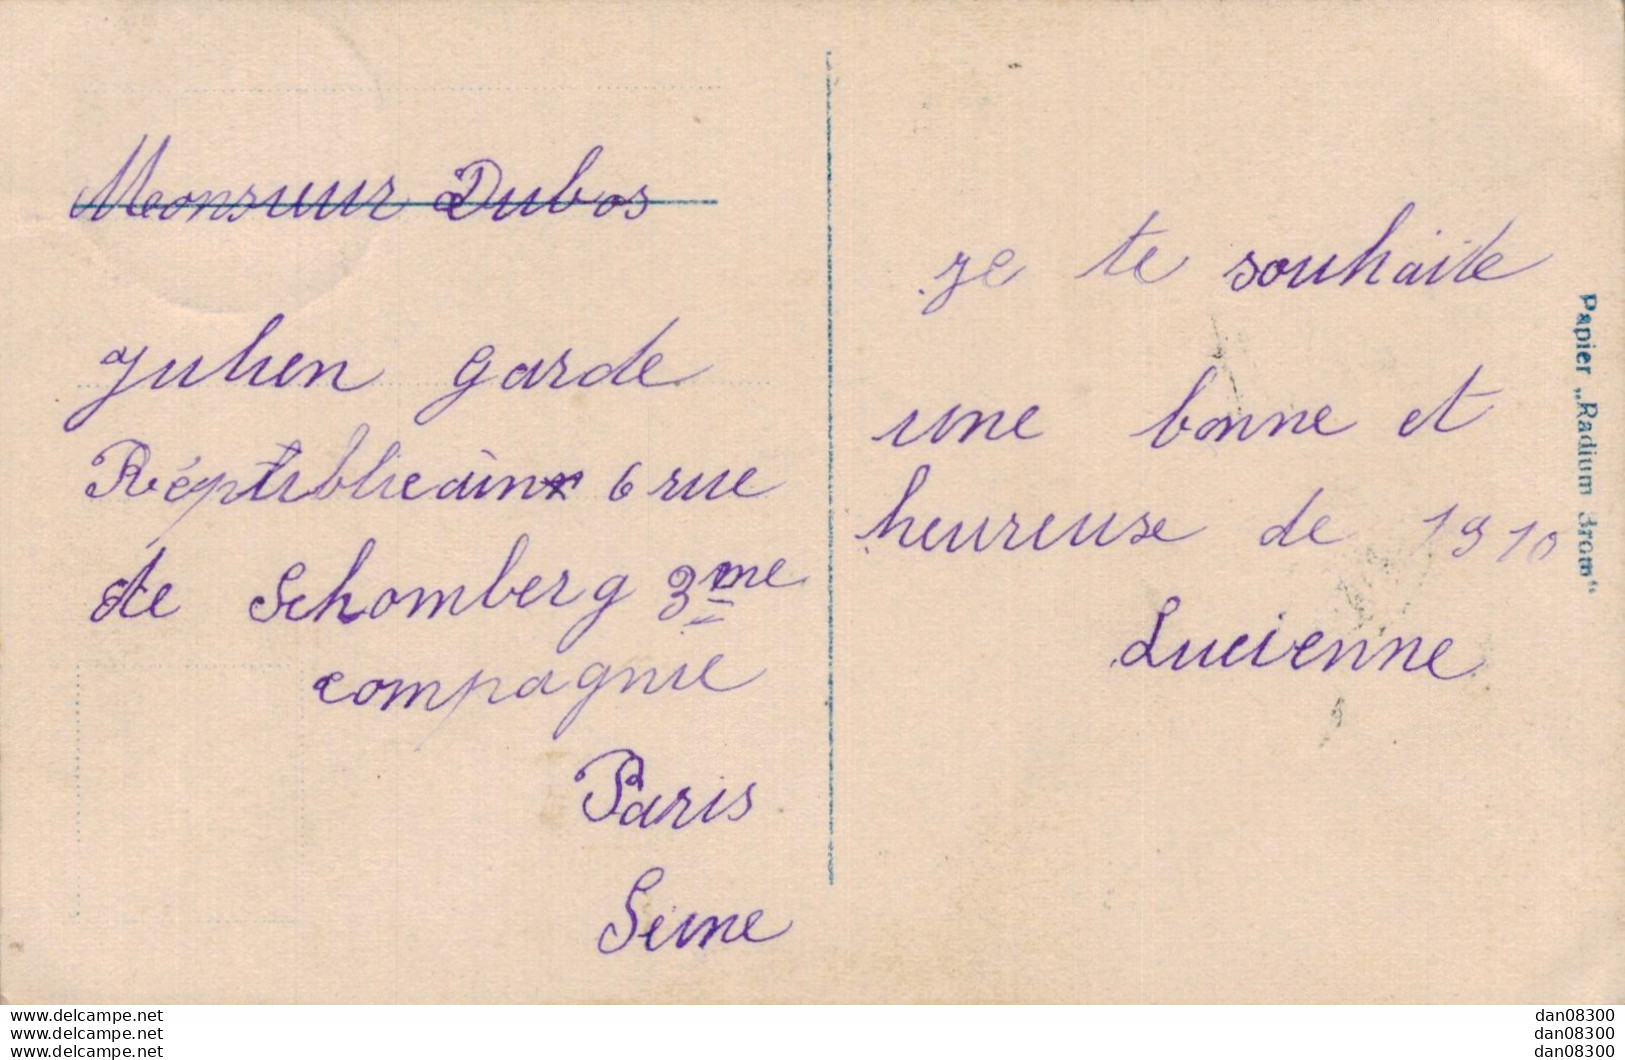 Monsieur Dubos
Julien garde
Républicain 6 rue
de Schomberg 3me
compagnie
Paris
Seine
je te souhaite
une bonne et
heureuse de 1910
Lucienne
Papier „Radium Brom“
www.delcampe.net
www.delcampe.net
www.delcampe.net
dan08300
dan08300
dan08300